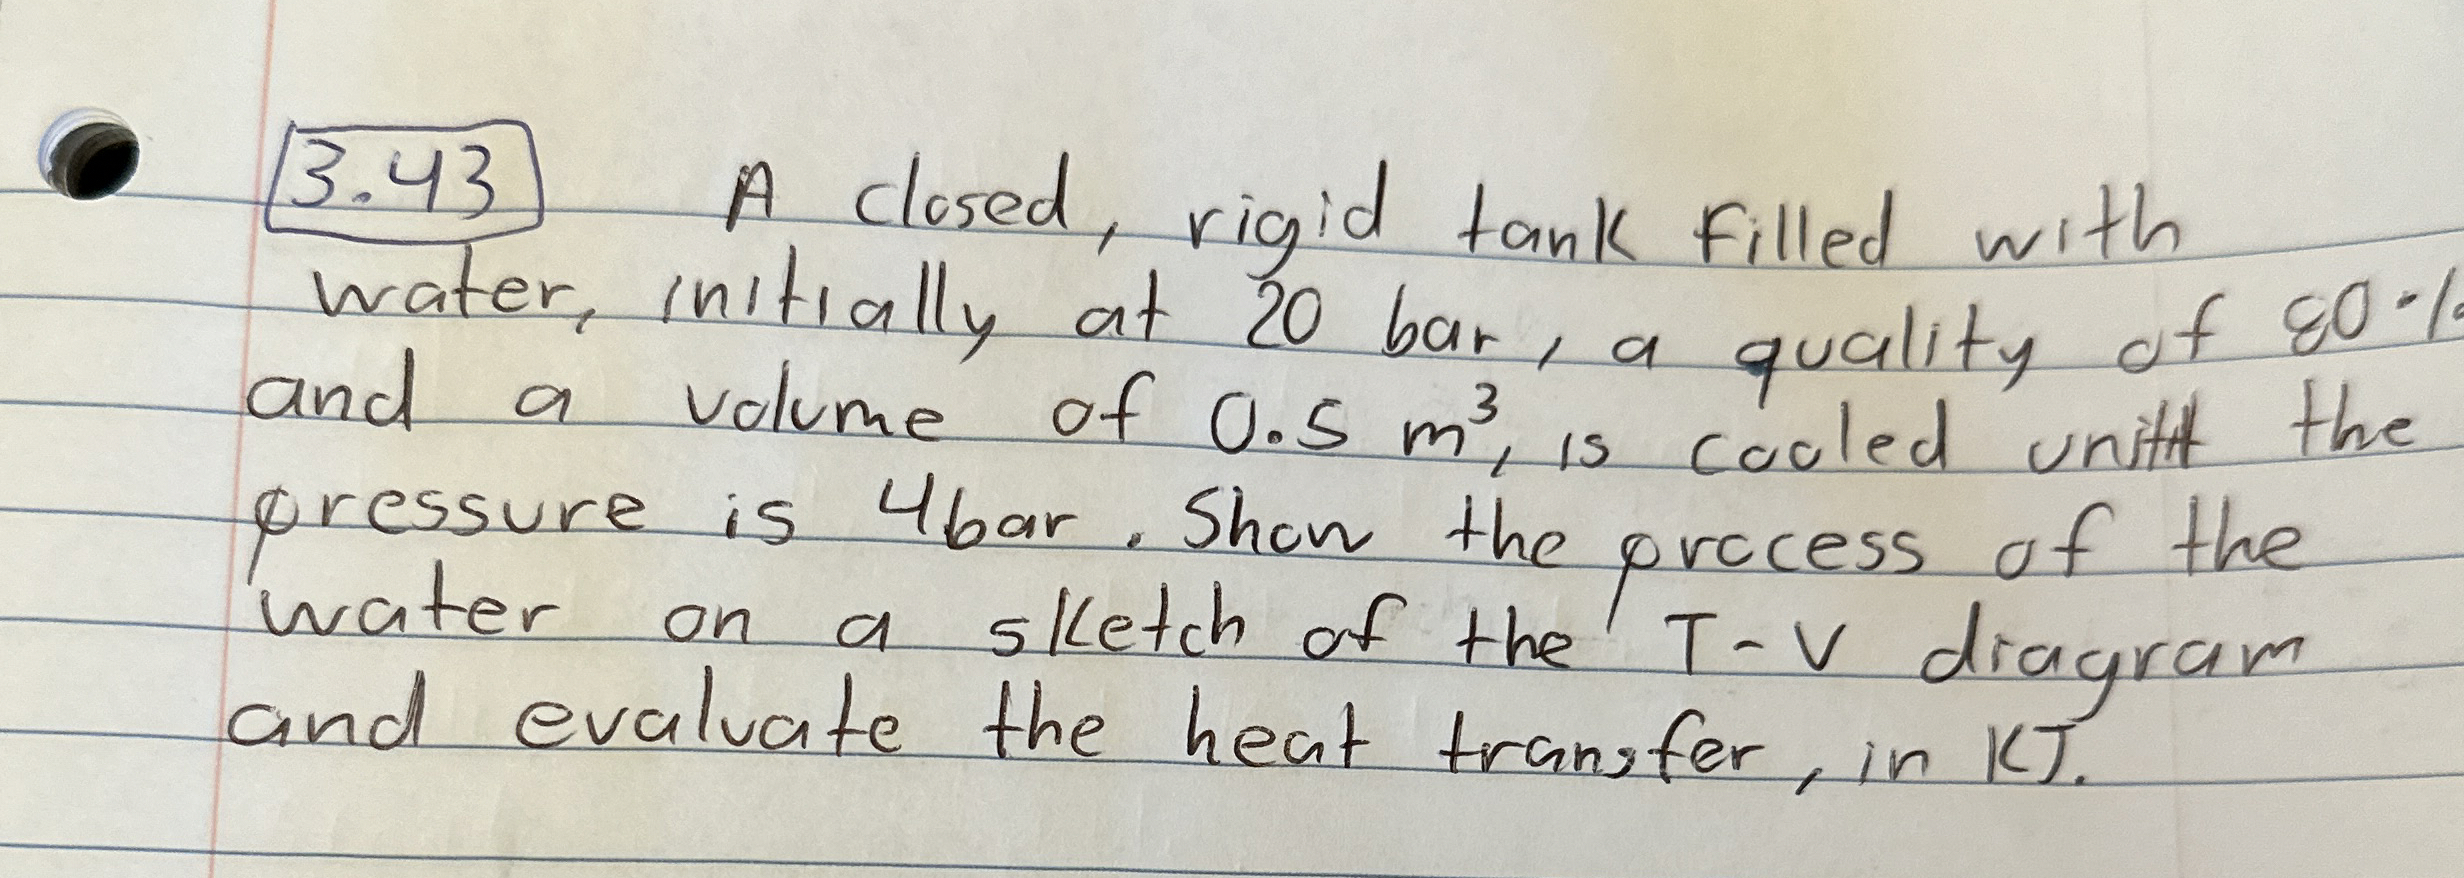 3.43 A closed, rigid tank filled with
water, initially at 20 bar, a quality of 80%
and a volume of 0.5 m³, is cooled until the
pressure is 4bar. Show the process of the
water on a sketch of the T-V diagram
and evaluate the heat transfer, in KJ.